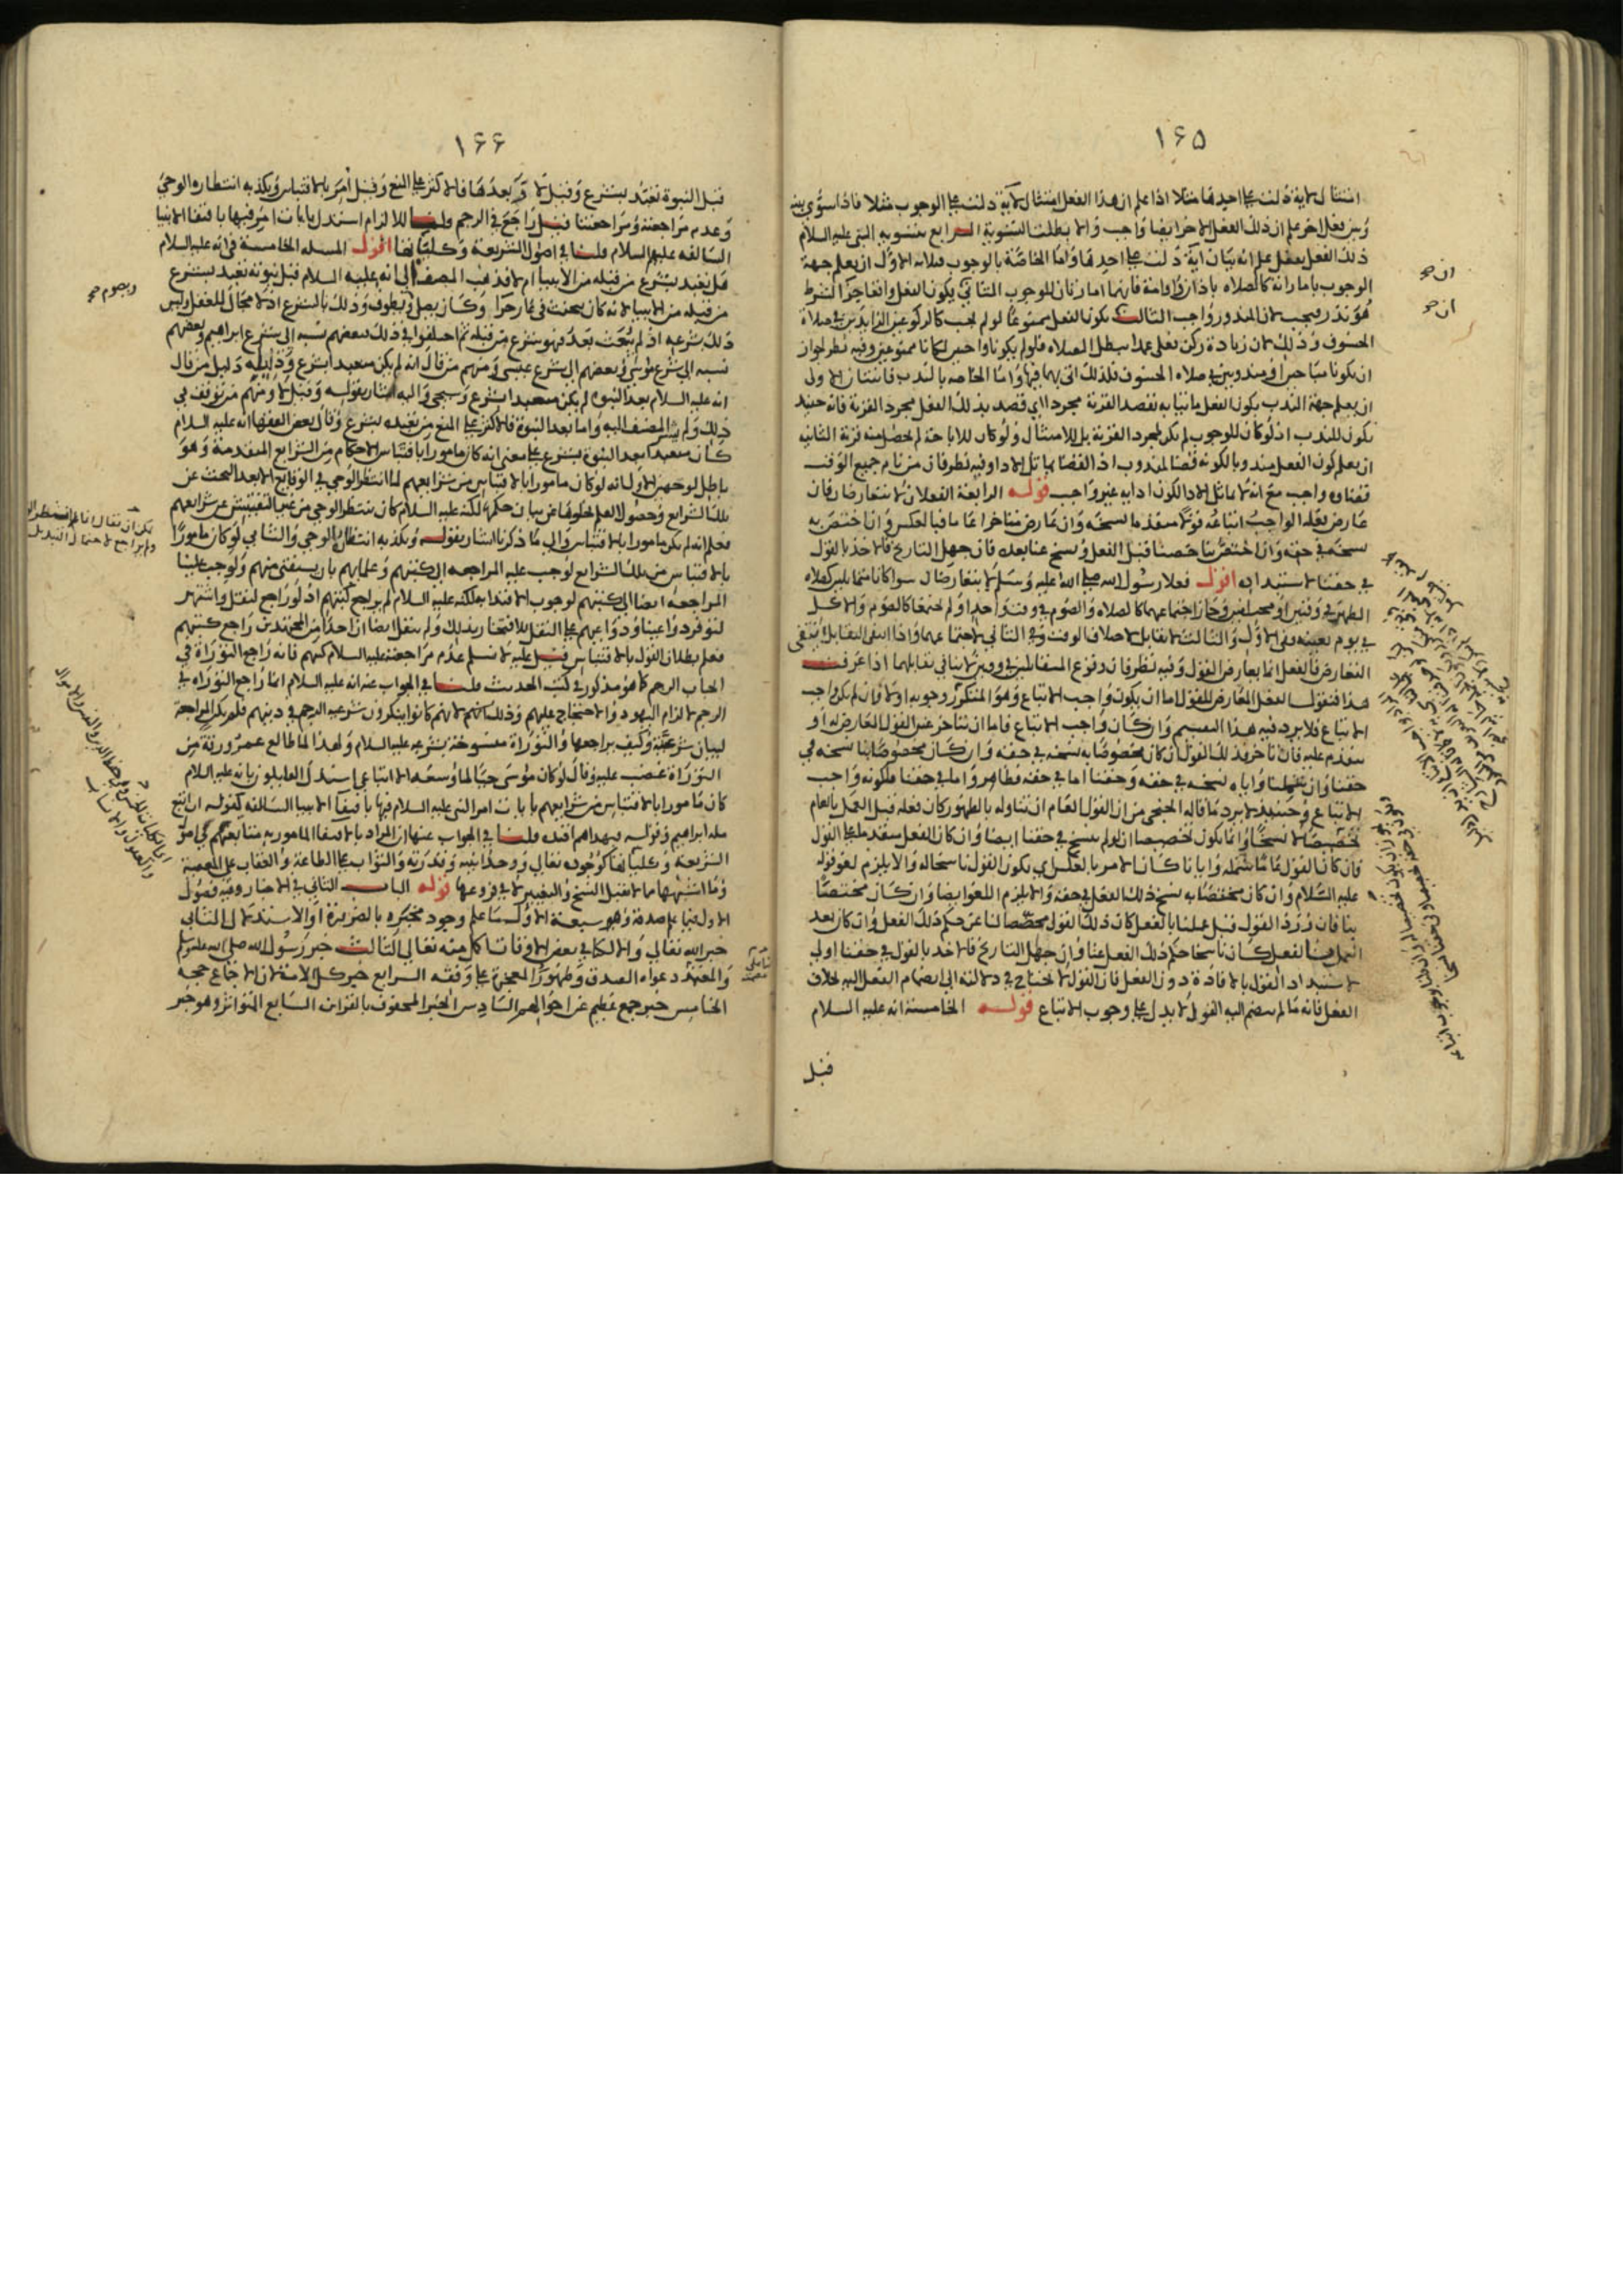 ١٦٥
امتثال لآية دلت على احدهما مثلا اذا علم ان هذا الفعل امتثال لآية دلت على الوجوب مثلا فاذا سوى بينه
وبين فعل اخر علم ان ذلك الفعل الاخر ايضا واجب والا بطلت التسوية الرابع تسويه النبي عليه السلام
ذلك الفعل بفعل علم انه بيان آية دلت على احدهما واما الخاصة بالوجوب فثلاثه الاول ان يعلم جهة
الوجوب بامارانه كالصلاه باذان واقامة فانهما امارتان للوجوب الثاني بكون الفعل وانعا جزا لشرط
هو نذر فيجب لان المنذور واجب الثالث بكونا لفعل ممنوعا لو لم يجب كالركوعين الزايدين في صلاة
الخسوف وذلك لان زيادة ركن فعلى عمدا يبطل الصلاه فلو لم يكونا واجبين لكانا ممنوعين وفيه نظر لجواز
ان يكونا مباحين او مندوبين في صلاه الخسوف فلذلك اتى بهما فيها واما الخاصه بالندب فاثنتان الاول
ان يعلم جهة الندب بكون الفعل ماتيا به لقصد القربة مجردا اي قصد بذلك الفعل مجرد القربة فانه حينيذ
يكون للندب اذ لو كان للوجوب لم يكن لمجرد القربة بل للامتثال ولو كان للاباحة لم يحصل منه قربة الثانيه
ان يعلم كون الفعل مندوبا لكونه قضا لمندوب اذ القضا يماثل الاداء وفيه نظر فان من نام جميع الوقت
فقضاوه واجب مع انه لا يماثل الادا لكون ادايه غير واجب قوله الرابعة الفعلان لا يتعارضان فان
عارض فعله الواجب اتباعه قولا متقدما نسخه وان عارض متاخرا عاما فبالعكس وان اختص به
نسخه في حقه وان اختص بنا خصنا قبل الفعل ونسخ عنا بعدك فان جهل التاريخ فالاخذ بالقول
في حقنا لاستبداده اقول فعلا رسول الله صلى الله عليه وسلم لا يتعارضان سوا كانا متماثلين كصلاه
الظهر في وقتين او مختلفين وجاز اجتماعهما كالصلاه والصوم في وقت واحد او لم يجتمعا كالصوم والاكل
في يوم بعينه وفي الاول والثالث لا تقابل لاختلاف الوقت وفي الثاني لاجتماعهما واذا انتفى التقابل انتفى
التعارض فالفعل انما يعارض القول وفيه نظر فان وقوع المتقابلين في وقتين لا ينافي تقابلهما اذا عرفت
هذا فنقول الفعل المعارض للقول اما ان يكون واجب الاتباع وهو المتكرر وجوبه اولا فان لم يكن واجب
الاتباع فلا يرد فيه هذا التقسيم وان كان واجب الاتباع فاما ان يتاخر عنه القول المعارض له او
يتقدم عليه فان تاخر فذلك القول ان كان مخصوصا به نسخه في حقه وان كان مخصوصا بنا نسخه في
حقنا وان عمنا واياه نسخه في حقه وحقنا اما في حقه فظاهر واما في حقنا فلكونه واجب
الاتباع وحينيذ لا يرد ما قاله الخنجي من ان القول العام ان تناوله بالظهور كان فعله قبل العمل بالعام
تخصيصا لا نسخا وانما يكون تخصيصا ان لو لم ينسخ في حقنا ايضا وان كان الفعل متقدما على القول
فان كان القول عاما شمله وايانا كان الامر بالعكس اي يكون القول ناسخا له والا يلزم لغو قوله
عليه السلام وان كان مختصا به نسخ ذلك الفعل في حقه والا يلزم اللغو ايضا وان كان مختصا
بنا فان ورد القول قبل عملنا بالفعل كان ذلك القول مخصصا لنا عن حكم ذلك الفعل وان كان بعد
العمل منا بالفعل كان ناسخا حكم ذلك الفعل عنا وان جهل التاريخ فالاخذ بالقول في حقنا اولى
لاستبداد القول بالافادة دون الفعل فان القول لا يحتاج في دلالته الى انضمام الفعل اليه بخلاف
الفعل فانه ما لم ينضم اليه القول لا يدل على وجوب الاتباع قوله الخامسة انه عليه السلام
قبل
١٦٦
قبل النبوة تعبد بشرع وقيل لا وبعدها فالاكثر على المنع وقيل امر بالاقتباس ويكذبه انتظاره الوحي
وعدم مراجعته ومراجعتنا قيل راجع في الرجم قلنا للالزام استدل بايات امر فيها باقتفا الانبيا
السالفه عليهم السلام قلنا في اصول الشريعة وكلياتها اقول المسله الخامسة في انه عليه السلام
هل تعبد بشرع من قبله من الانبيا ام لا فذهب المصنف الى انه عليه السلام قبل نبوته تعبد بشرع
من قبله من الانبيا لانه كان يتحنث في غار حرا وكان يصلي ويطوف وذلك بالشرع اذ لا مجال للعقل وليس
ذلك بشرعه اذ لم يبعث بعد فهو بشرع من قبله ثم اختلفوا في ذلك فبعضهم نسبه الى شرع ابراهيم وبعضهم
نسبه الى شرع موسى وبعضهم الى شرع عيسى ومنهم من قال انه لم يكن متعبدا بشرع ودليله دليل من قال
انه عليه السلام بعد النبوه لم يكن متعبدا بشرع وسيجي واليه اشار بقوله وقيل لا ومنهم من توقف في
ذلك ولم يشر المصنف اليه واما بعد النبوة فالاكثر على المنع من تعبده بشرع وقال بعض الفقها انه عليه السلام
كان متعبدا بعد النبوة بشرع على معنى انه كان مامورا باقتباس الاحكام من الشرايع المتقدمة وهو
باطل لوجهين الاول انه لو كان مامورا بالاقتباس من شرايعهم لما انتظر الوحي في الوقايع الا بعد البحث عن
تلك الشرايع وحصول العلم بخلوها عن بيان حكمها لكنه عليه السلام كان ينتظر الوحي من غير التفتيش عن شرايعهم
فعلم انه لم يكن مامورا بالاقتباس والى ما ذكرنا اشار بقوله ويكذبه انتظاره الوحي والثاني لو كان مامورا
بالاقتباس من تلك الشرايع لوجب عليه المراجعه الى كتبهم وعلمايهم بان يستفتى منهم ولوجب علينا
المراجعه ايضا الى كتبهم لوجوب الاقتدا به لكنه عليه السلام لم يراجع كتبهم اذ لو راجع لنقل واشتهر
لتوفر دواعينا ودواعيهم على النقل للافتخار بذلك ولم ينقل ايضا ان احدا من المجتهدين راجع كتبهم
فعلم بطلان القول بالاقتباس قيل عليه لا نسلم عدم مراجعته عليه السلام كتبهم فانه راجع التوراة في
ايجاب الرجم كما هو مذكور في كتب الحديث قلنا في الجواب عنه انه عليه السلام انما راجع التوراه في
الرجم لالزام اليهود والاحتجاج عليهم وذلك لانهم كانوا ينكرون شرعيه الرجم في دينهم فلم يكن المراجعة
لبيان شرعيته وكيف يراجعها والتوراة منسوخة بشرعه عليه السلام ولهذا لما طالع عمر ورقة من
التوراة غضب عليه وقال لو كان موسى حيا لما وسعه الا اتباعي استدل القايلون بانه عليه السلام
كان مامورا بالاقتباس من شرايعهم بايات امر النبي عليه السلام فيها باقتفا الانبيا السالفه كقوله ان اتبع
ملة ابراهيم وقوله فبهداهم اقتده قلنا في الجواب عنها ان المراد بالاقتفا المامور به متابعتهم في اصول
الشريعة وكلياتها كوجوده تعالى ووحدانيته وقدرته والثواب على الطاعة والعقاب على المعصية
وما اشبهها مما لا يقبل النسخ والتغيير لا في فروعها قوله الباب الثاني في الاخبار وفيه فصول
الاول فيما علم صدقه وهو سبعة الاول ما علم وجود مخبره بالضرورة او الاستدلال الثاني
خبر الله تعالى والا لكنا في بعض الاوقات اكمل منه تعالى الثالث خبر رسول الله صلى الله عليه وسلم
والمعتمد دعواه الصدق وظهور المعجزة على وفقه الرابع خبر كل الامة لان الاجماع حجة
الخامس خبر جمع عظيم عن احوالهم السادس الخبر المحفوف بالقراين السابع المتواتر وهو خبر